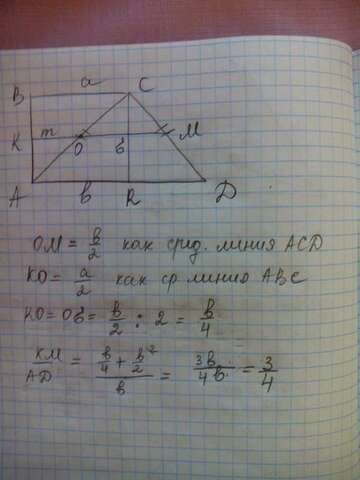 B a C
K m O б M
A b R D
OM = b/2 как сред. линия ACD
KO = a/2 как ср линию ABC
KO = Oб = b/2 : 2 = b/4
KM/AD = (b/4 + b/2²)/b = 3b/4b = 3/4